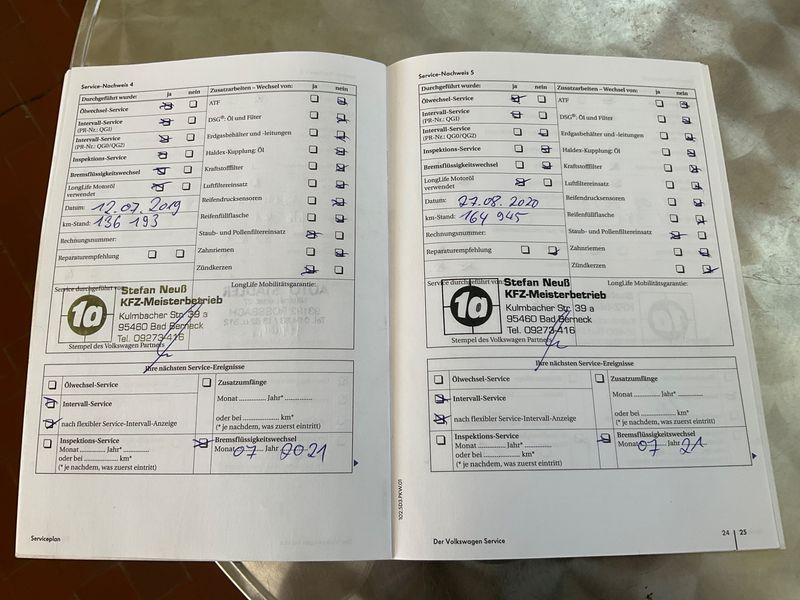 Service-Nachweis 4
Durchgeführt wurde: ja nein
Ölwechsel-Service
Intervall-Service
(PR-Nr.: QG1)
Intervall-Service
(PR-Nr.: QG0/QG2)
Inspektions-Service
Bremsflüssigkeitswechsel
LongLife Motoröl
verwendet
Datum: 12.07.2019
km-Stand: 136 193
Rechnungsnummer:
Reparaturempfehlung
Zusatzarbeiten – Wechsel von: ja nein
ATF
DSG®: Öl und Filter
Erdgasbehälter und -leitungen
Haldex-Kupplung: Öl
Kraftstofffilter
Luftfiltereinsatz
Reifendrucksensoren
Reifenfüllflasche
Staub- und Pollenfiltereinsatz
Zahnriemen
Zündkerzen
Service durchgeführt
LongLife Mobilitätsgarantie:
1a
Stefan Neuß
KFZ-Meisterbetrieb
Kulmbacher Str. 39 a
95460 Bad Berneck
Tel. 09273-416
Stempel des Volkswagen Partners
Ihre nächsten Service-Ereignisse
Ölwechsel-Service
Intervall-Service
nach flexibler Service-Intervall-Anzeige
Inspektions-Service
Monat Jahr*
oder bei km*
(* je nachdem, was zuerst eintritt)
Zusatzumfänge
Monat Jahr*
oder bei km*
(* je nachdem, was zuerst eintritt)
Bremsflüssigkeitswechsel
Monat 07 Jahr 2021
Serviceplan
Service-Nachweis 5
Durchgeführt wurde: ja nein
Ölwechsel-Service
Intervall-Service
(PR-Nr.: QG1)
Intervall-Service
(PR-Nr.: QG0/QG2)
Inspektions-Service
Bremsflüssigkeitswechsel
LongLife Motoröl
verwendet
Datum: 27.08.2020
km-Stand: 164 945
Rechnungsnummer:
Reparaturempfehlung
Zusatzarbeiten – Wechsel von: ja nein
ATF
DSG®: Öl und Filter
Erdgasbehälter und -leitungen
Haldex-Kupplung: Öl
Kraftstofffilter
Luftfiltereinsatz
Reifendrucksensoren
Reifenfüllflasche
Staub- und Pollenfiltereinsatz
Zahnriemen
Zündkerzen
Service durchgeführt von:
LongLife Mobilitätsgarantie:
1a
Stefan Neuß
KFZ-Meisterbetrieb
Kulmbacher Str. 39 a
95460 Bad Berneck
Tel. 09273-416
Stempel des Volkswagen Partners
Ihre nächsten Service-Ereignisse
Ölwechsel-Service
Intervall-Service
nach flexibler Service-Intervall-Anzeige
Inspektions-Service
Monat Jahr*
oder bei km*
(* je nachdem, was zuerst eintritt)
Zusatzumfänge
Monat Jahr*
oder bei km*
(* je nachdem, was zuerst eintritt)
Bremsflüssigkeitswechsel
Monat 07 Jahr 21
102.5D3.PKW.01
Der Volkswagen Service
24 | 25